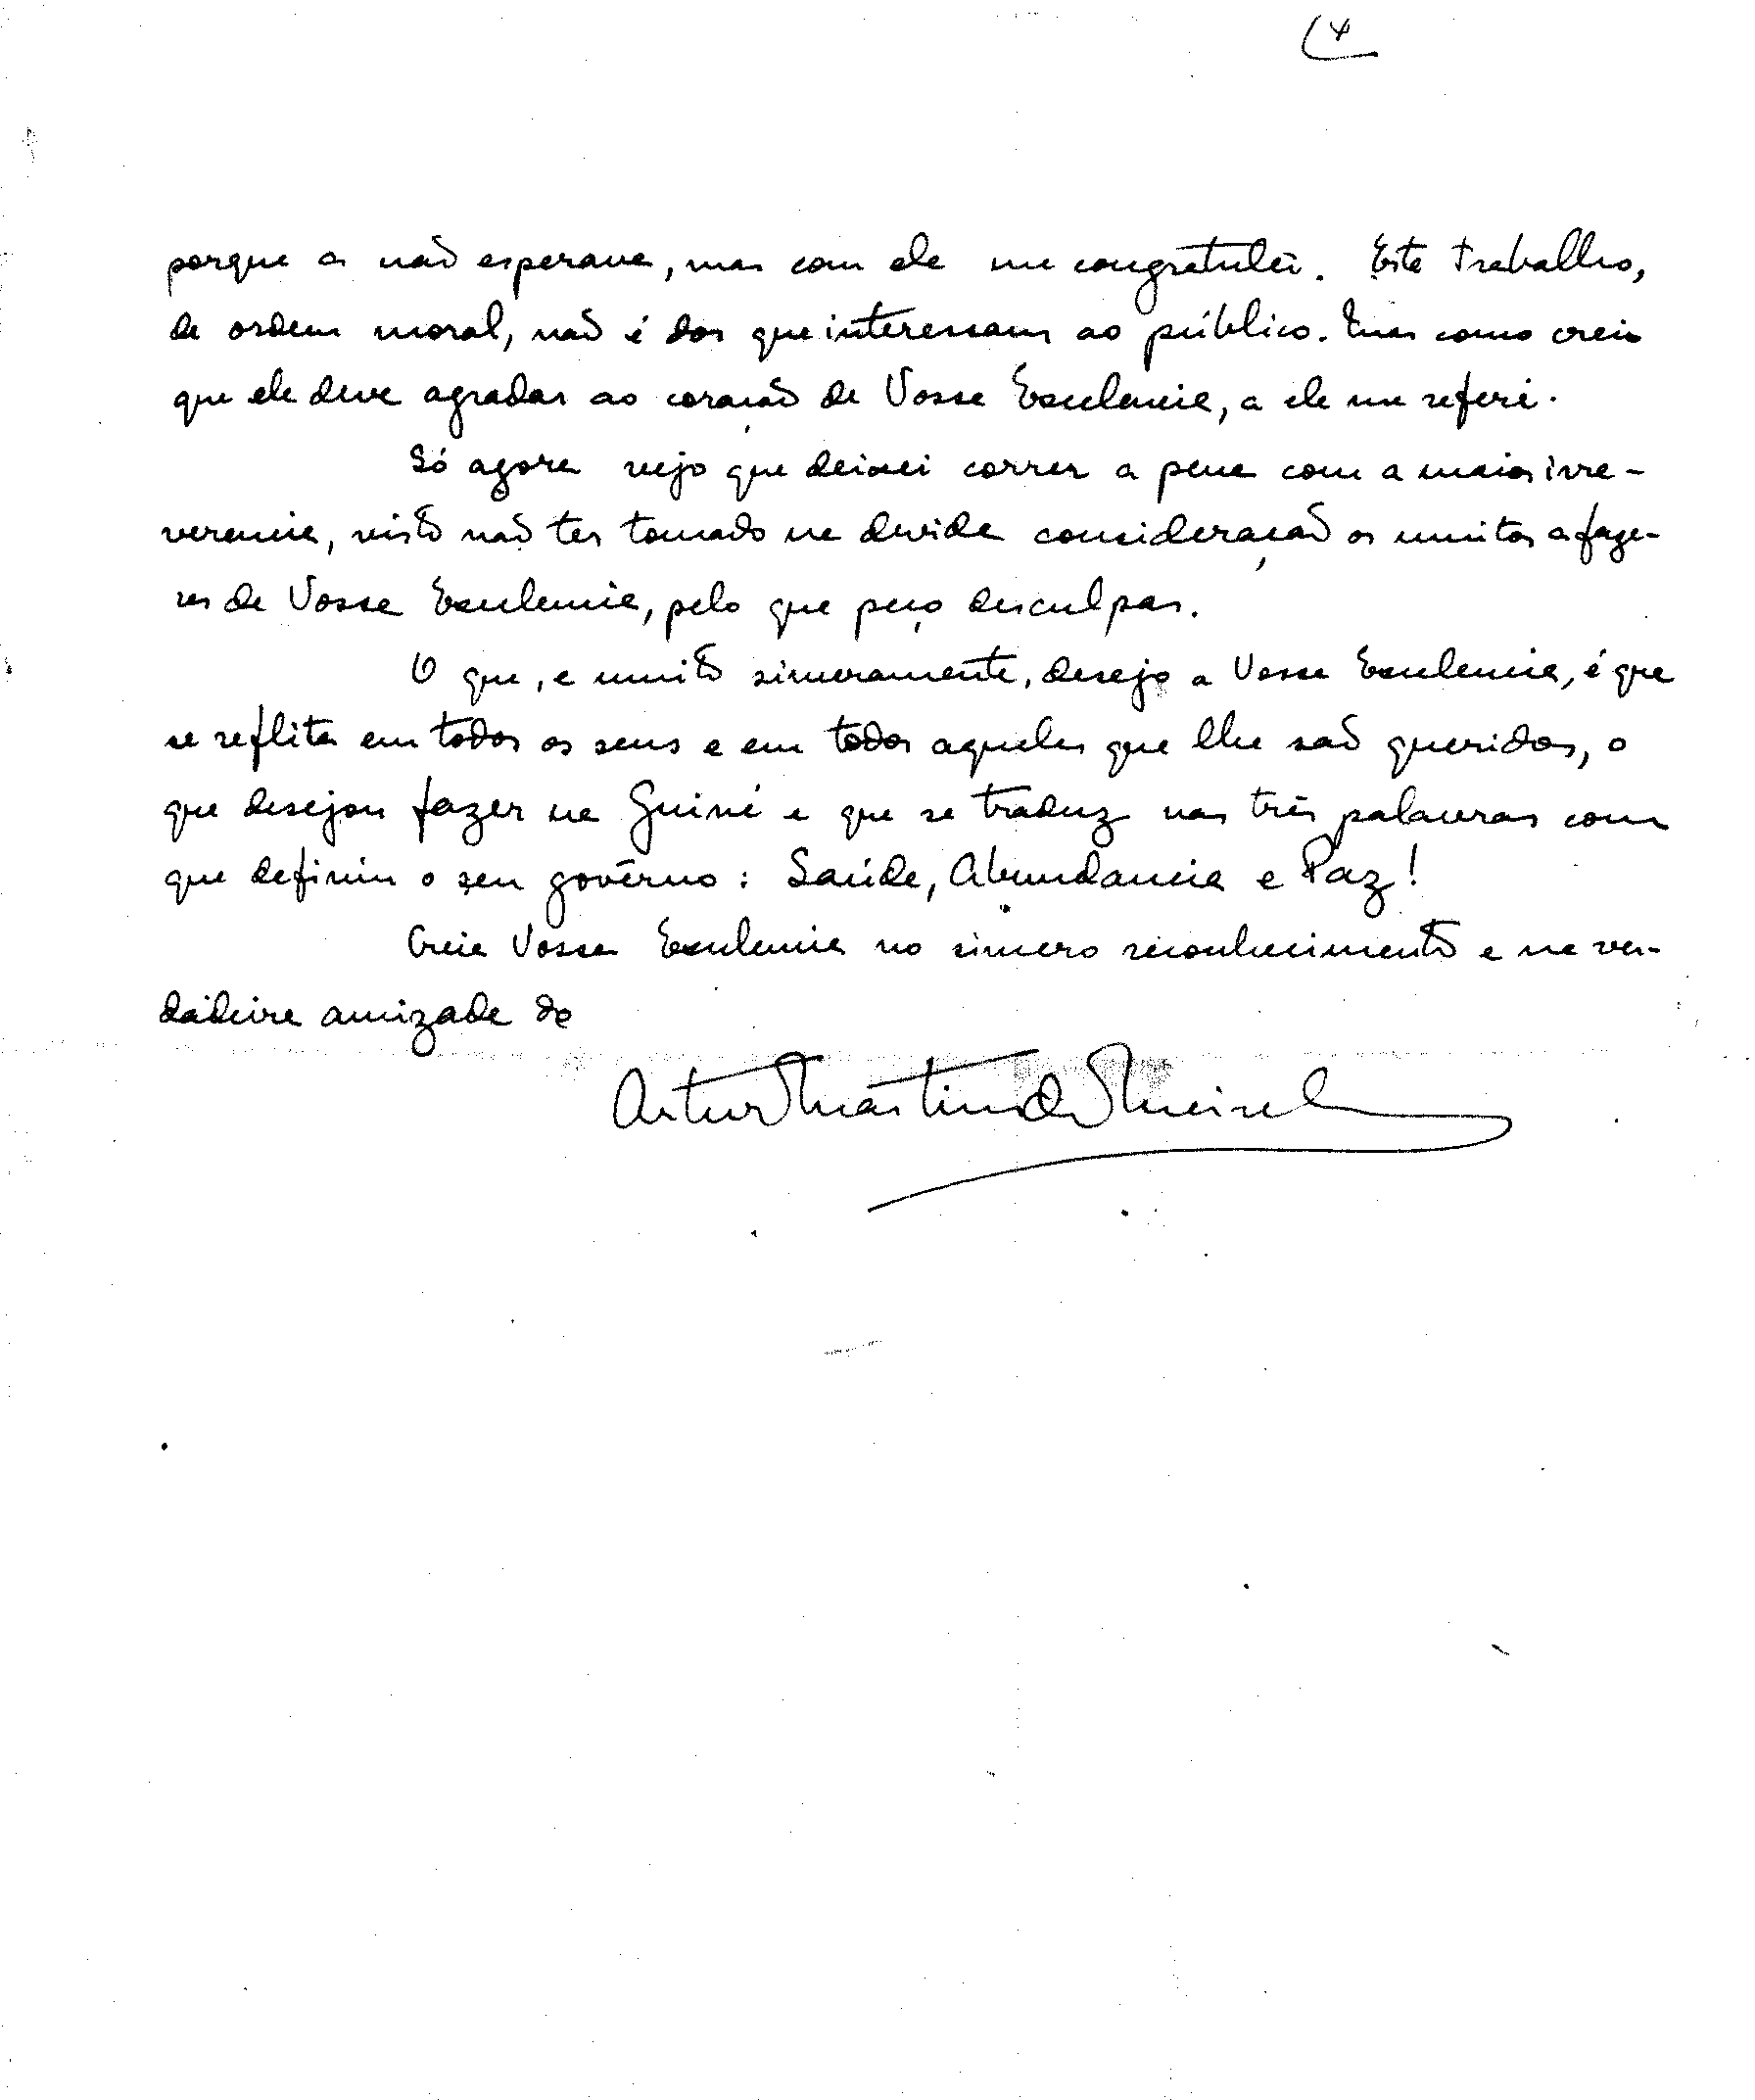 (4
porque a não esperava, mas com ela me congratulei. Este trabalho,
de ordem moral, não é dos que interessam ao público. Mas como creio
que ele deve agradar ao coração de Vossa Excelencia, a ele me referi.
Só agora vejo que deixei correr a pena com a maior irre-
verencia, visto não ter tomado na devida consideração os muitos afaze-
res de Vossa Excelencia, pelo que peço desculpas.
O que, e muito sinceramente, desejo a Vossa Excelencia, é que
se reflita em todos os seus e em todos aqueles que lhe são queridos, o
que desejou fazer na Guiné e que se traduz nas três palavras com
que definiu o seu govêrno: Saúde, Abundancia e Paz!
Creia Vossa Excelencia no sincero reconhecimento e na ver-
dadeira amizade de
Artur Martins de Meireles